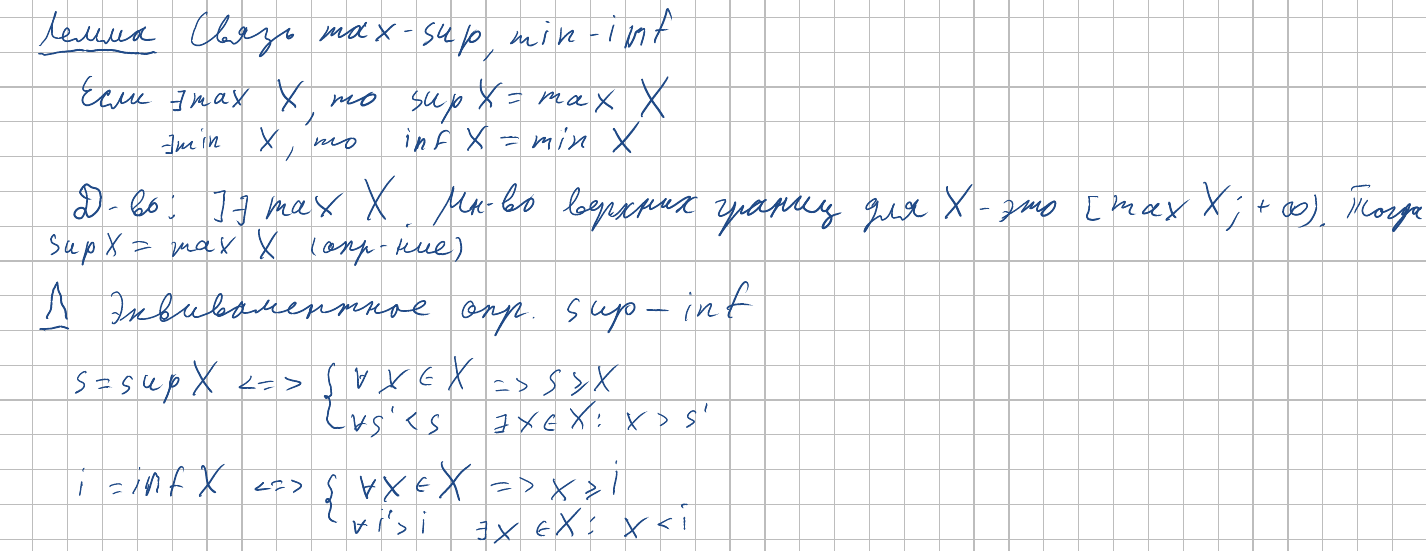 Лемма Связь max-sup, min-inf
Если ∃max X, то sup X = max X
∃min X, то inf X = min X
Д-во: ]∃ max X. Мн-во верхних границ для X - это [max X; +∞). Тогда
sup X = max X (опр-ние)
Л Эквивалентное опр. sup-inf
s = sup X <=> { ∀x ∈ X => s ≥ x
∀s' < s ∃x ∈ X: x > s'
i = inf X <=> { ∀x ∈ X => x ≥ i
∀i' > i ∃x ∈ X: x < i